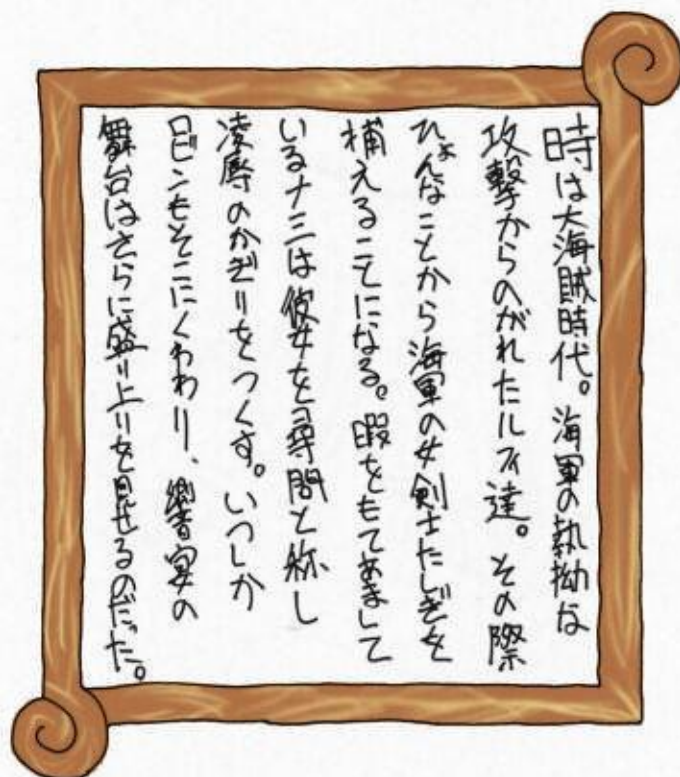 時は大海賊時代。海軍の執拗な
攻撃からのがれたルフィ達。その際
ひょんなことから海軍の女剣士たしぎを
捕えることになる。暇をもてあまして
いるナミは彼女を尋問と称し
凌辱のかぎりをつくす。いつしか
ロビンもそこにくわわり、饗宴の
舞台はさらに盛り上りを見せるのだった。